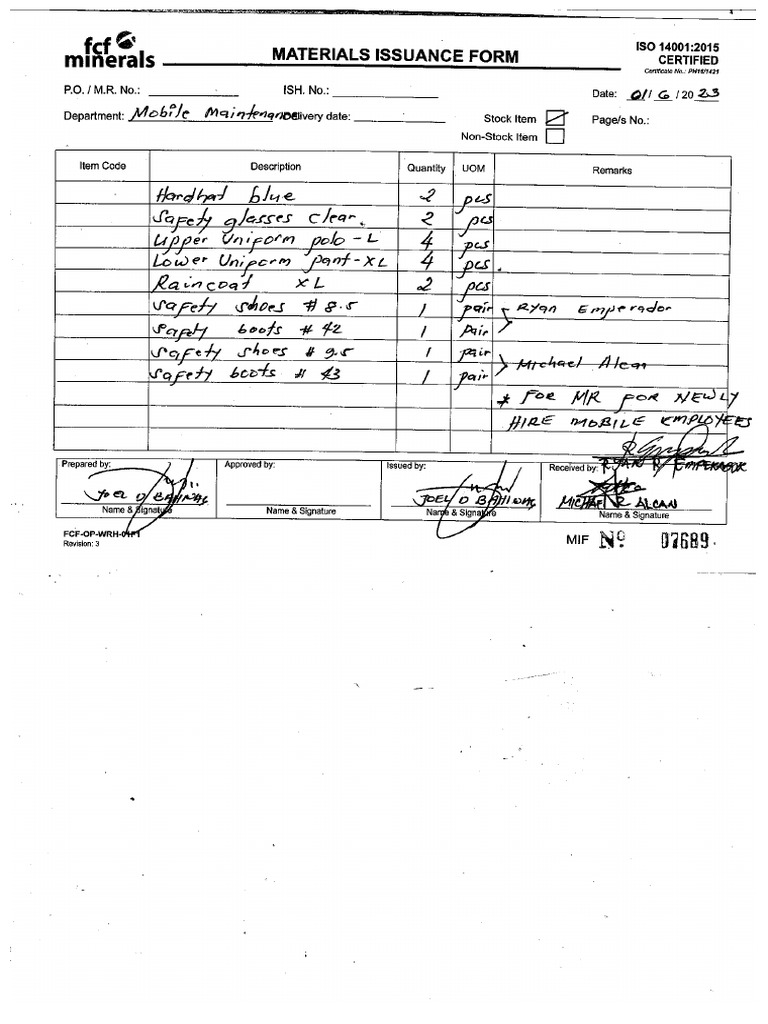 fcf minerals
MATERIALS ISSUANCE FORM
ISO 14001:2015
CERTIFIED
Certificate No.: PH16/1421
P.O. / M.R. No.:
ISH. No.:
Date: 01/ 6 / 20 23
Department: Mobile Maintenance
Delivery date:
Stock Item
Page/s No.:
Non-Stock Item
Item Code Description Quantity UOM Remarks
Hardhat blue 2 pcs
Safety glasses clear. 2 pcs
Upper Uniform polo - L 4 pcs
Lower Uniform pant - XL 4 pcs.
Raincoat XL 2 pcs
Safety shoes # 8.5 1 pair Ryan Emperador
Safety boots # 42 1 pair
Safety shoes # 9.5 1 pair
Michael Alcan
Safety boots # 43 1 pair
* FOR MR FOR NEWLY
HIRE MOBILE EMPLOYEES
Prepared by: Approved by: Issued by: Received by: RYAN R. EMPERADOR
JOEL D BAHINAS JOEL D BAHINAS MICHAEL R ALCAN
Name & Signature Name & Signature Name & Signature Name & Signature
FCF-OP-WRH-01F1
Revision: 3
MIF Nº 07689.